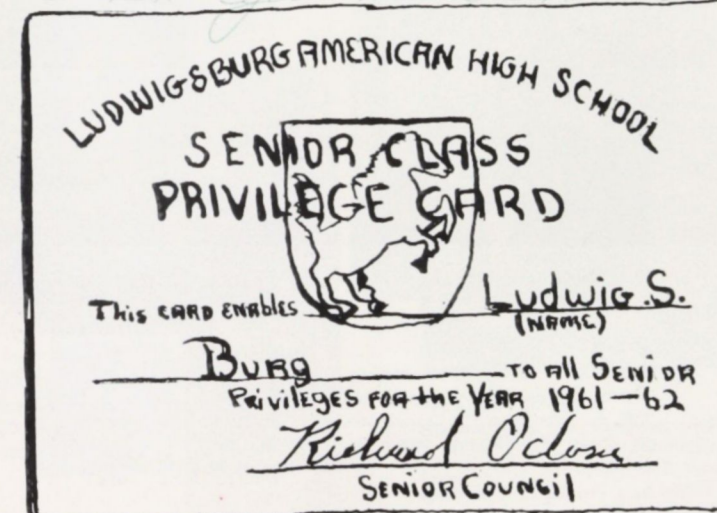 LUDWIGSBURG AMERICAN HIGH SCHOOL
SENIOR CLASS
PRIVILEGE CARD
This CARD ENABLES Ludwig.S.
(NAME)
Burg TO All SENIOR
PRIVILEGES FOR the YEAR 1961-62
Richard
SENIOR COUNCIL